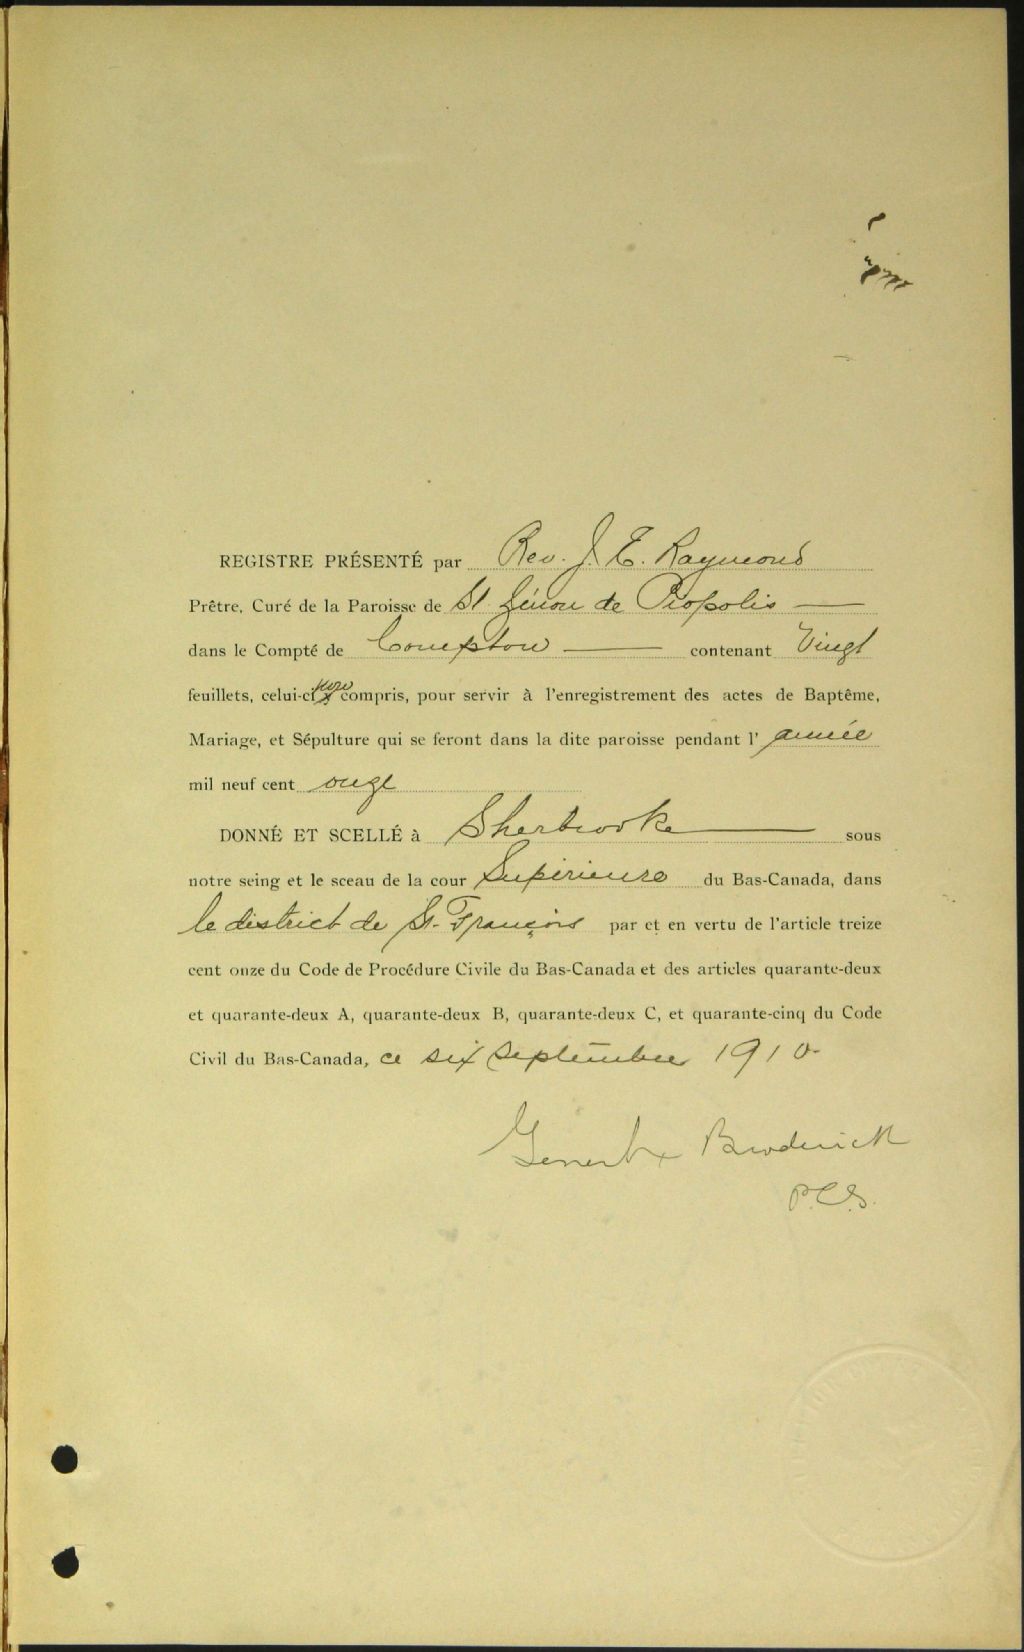 REGISTRE PRÉSENTÉ par Rev. J. E. Raymond
Prêtre, Curé de la Paroisse de St Zénon de Piopolis
dans le Compté de Compton contenant Vingt
feuillets, celui-ci non compris, pour servir à l'enregistrement des actes de Baptême,
Mariage, et Sépulture qui se feront dans la dite paroisse pendant l' année
mil neuf cent onze
DONNÉ ET SCELLÉ à Sherbrooke sous
notre seing et le sceau de la cour Supérieure du Bas-Canada, dans
le district de St. François par et en vertu de l'article treize
cent onze du Code de Procédure Civile du Bas-Canada et des articles quarante-deux
et quarante-deux A, quarante-deux B, quarante-deux C, et quarante-cinq du Code
Civil du Bas-Canada, ce six septembre 1910
Broderick
P.C.S.